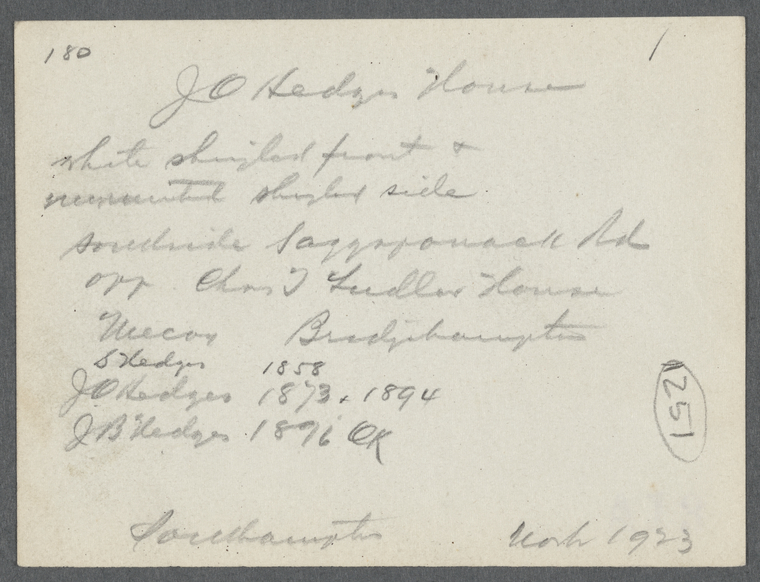 180 /
J O Hedges House
white shingled front +
unpainted shingled side
southside Saggaponack Rd
opp. Chas T Ludlow House
Mecox Bridgehampton
S Hedges 1858
J O Hedges 1873 + 1894
J B Hedges 1896 OK
251
Southampton 1923